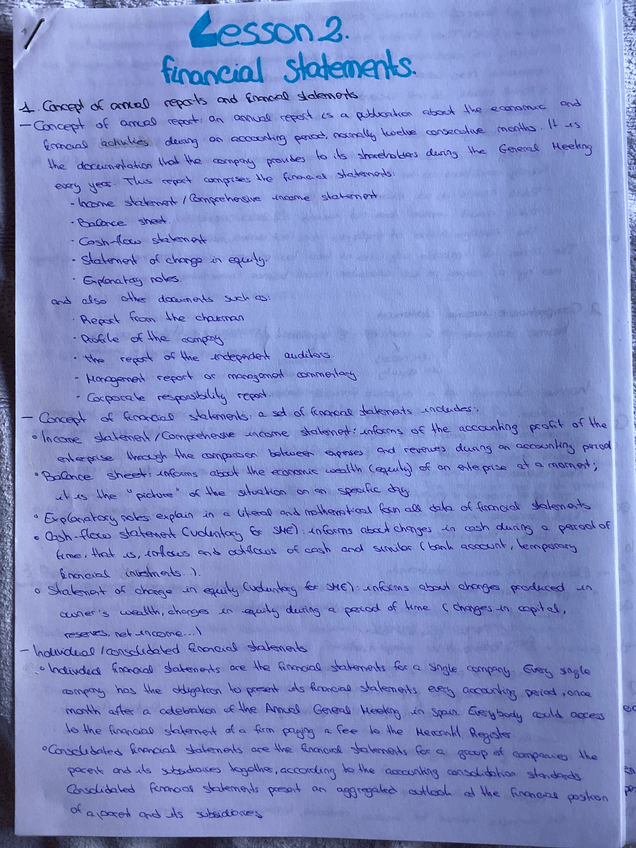 Lesson 2.
financial statements.
1. Concept of annual reports and financial statements
- Concept of annual report: an annual report is a publication about the economic and
financial activities during an accounting period, normally twelve consecutive months. It is
the documentation that the company provides to its shareholders during the General Meeting
every year. This report comprises the financial statements:
· Income statement / Comprehensive income statement
· Balance sheet
· Cash-flow statement
· Statement of change in equity.
· Explanatory notes.
and also other documents such as:
· Report from the chairman
· Profile of the company
· The report of the independent auditors
· Management report or management commentary
· Corporate responsibility report
- Concept of financial statements: a set of financial statements includes:
° Income statement/Comprehensive income statement: informs of the accounting profit of the
enterprise through the comparison between expenses and revenues during an accounting period
° Balance sheet: informs about the economic wealth (equity) of an enterprise at a moment;
it is the "picture" of the situation on an specific day
° Explanatory notes explain in a literal and mathematical form all data of financial statements
° Cash-flow statement (voluntary for SME): informs about changes in cash during a period of
time, that is, inflows and outflows of cash and similar (bank account, temporary
financial investments...).
° Statement of change in equity (voluntary for SME): informs about changes produced in
owner's wealth, changes in equity during a period of time (changes in capital,
reserves, net income...)
- Individual/consolidated financial statements
° Individual financial statements are the financial statements for a single company. Every single
company has the obligation to present its financial statements every accounting period, once
month after a celebration of the Annual General Meeting in Spain. Everybody could access
to the financial statement of a firm paying a fee to the Mercantil Register
° Consolidated financial statements are the financial statements for a group of companies the
parent and its subsidiaries together, according to the accounting consolidation standards
Consolidated financial statements present an aggregated outlook at the financial position
of a parent and its subsidiaries